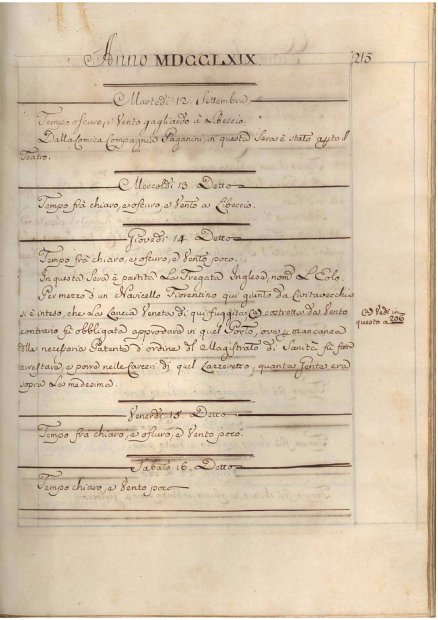 Anno MDCCLXIX. 215
Martedì 12. Settembre
Tempo oscuro, e Vento gagliardo à Libeccio.
Dalla Comica Compagnia Paganini, in questa Sera è stato ap.to il
Teatro.
Mercoldì 13. Detto
Tempo frà chiaro, e oscuro, e Vento a Libeccio.
Giovedì 14. Detto
Tempo frà chiaro, e oscuro, e Vento poco.
In questa Sera è partita La Fregata Inglese, nom.a L'Eolo.
Per mezzo d'un Navicello Fiorentino qui giunto da Civitavecchia
si è inteso, che La Lancia Veneta di qui fuggita (a) costretta da Vento
contrario fù obbligata approdare in quel Porto, ove p mancanza
della necessaria Patente d'ordine del Magistrato di Sanità fù fatta
arrestare, e porre nelle Carceri di quel Lazzeretto, quanta Gente era
sopra La medesima.
(a) Vedi in
questo a 206
Venerdì 15. Detto
Tempo frà chiaro, e oscuro, e Vento poco.
Sabato 16. Detto
Tempo chiaro, e Vento poco